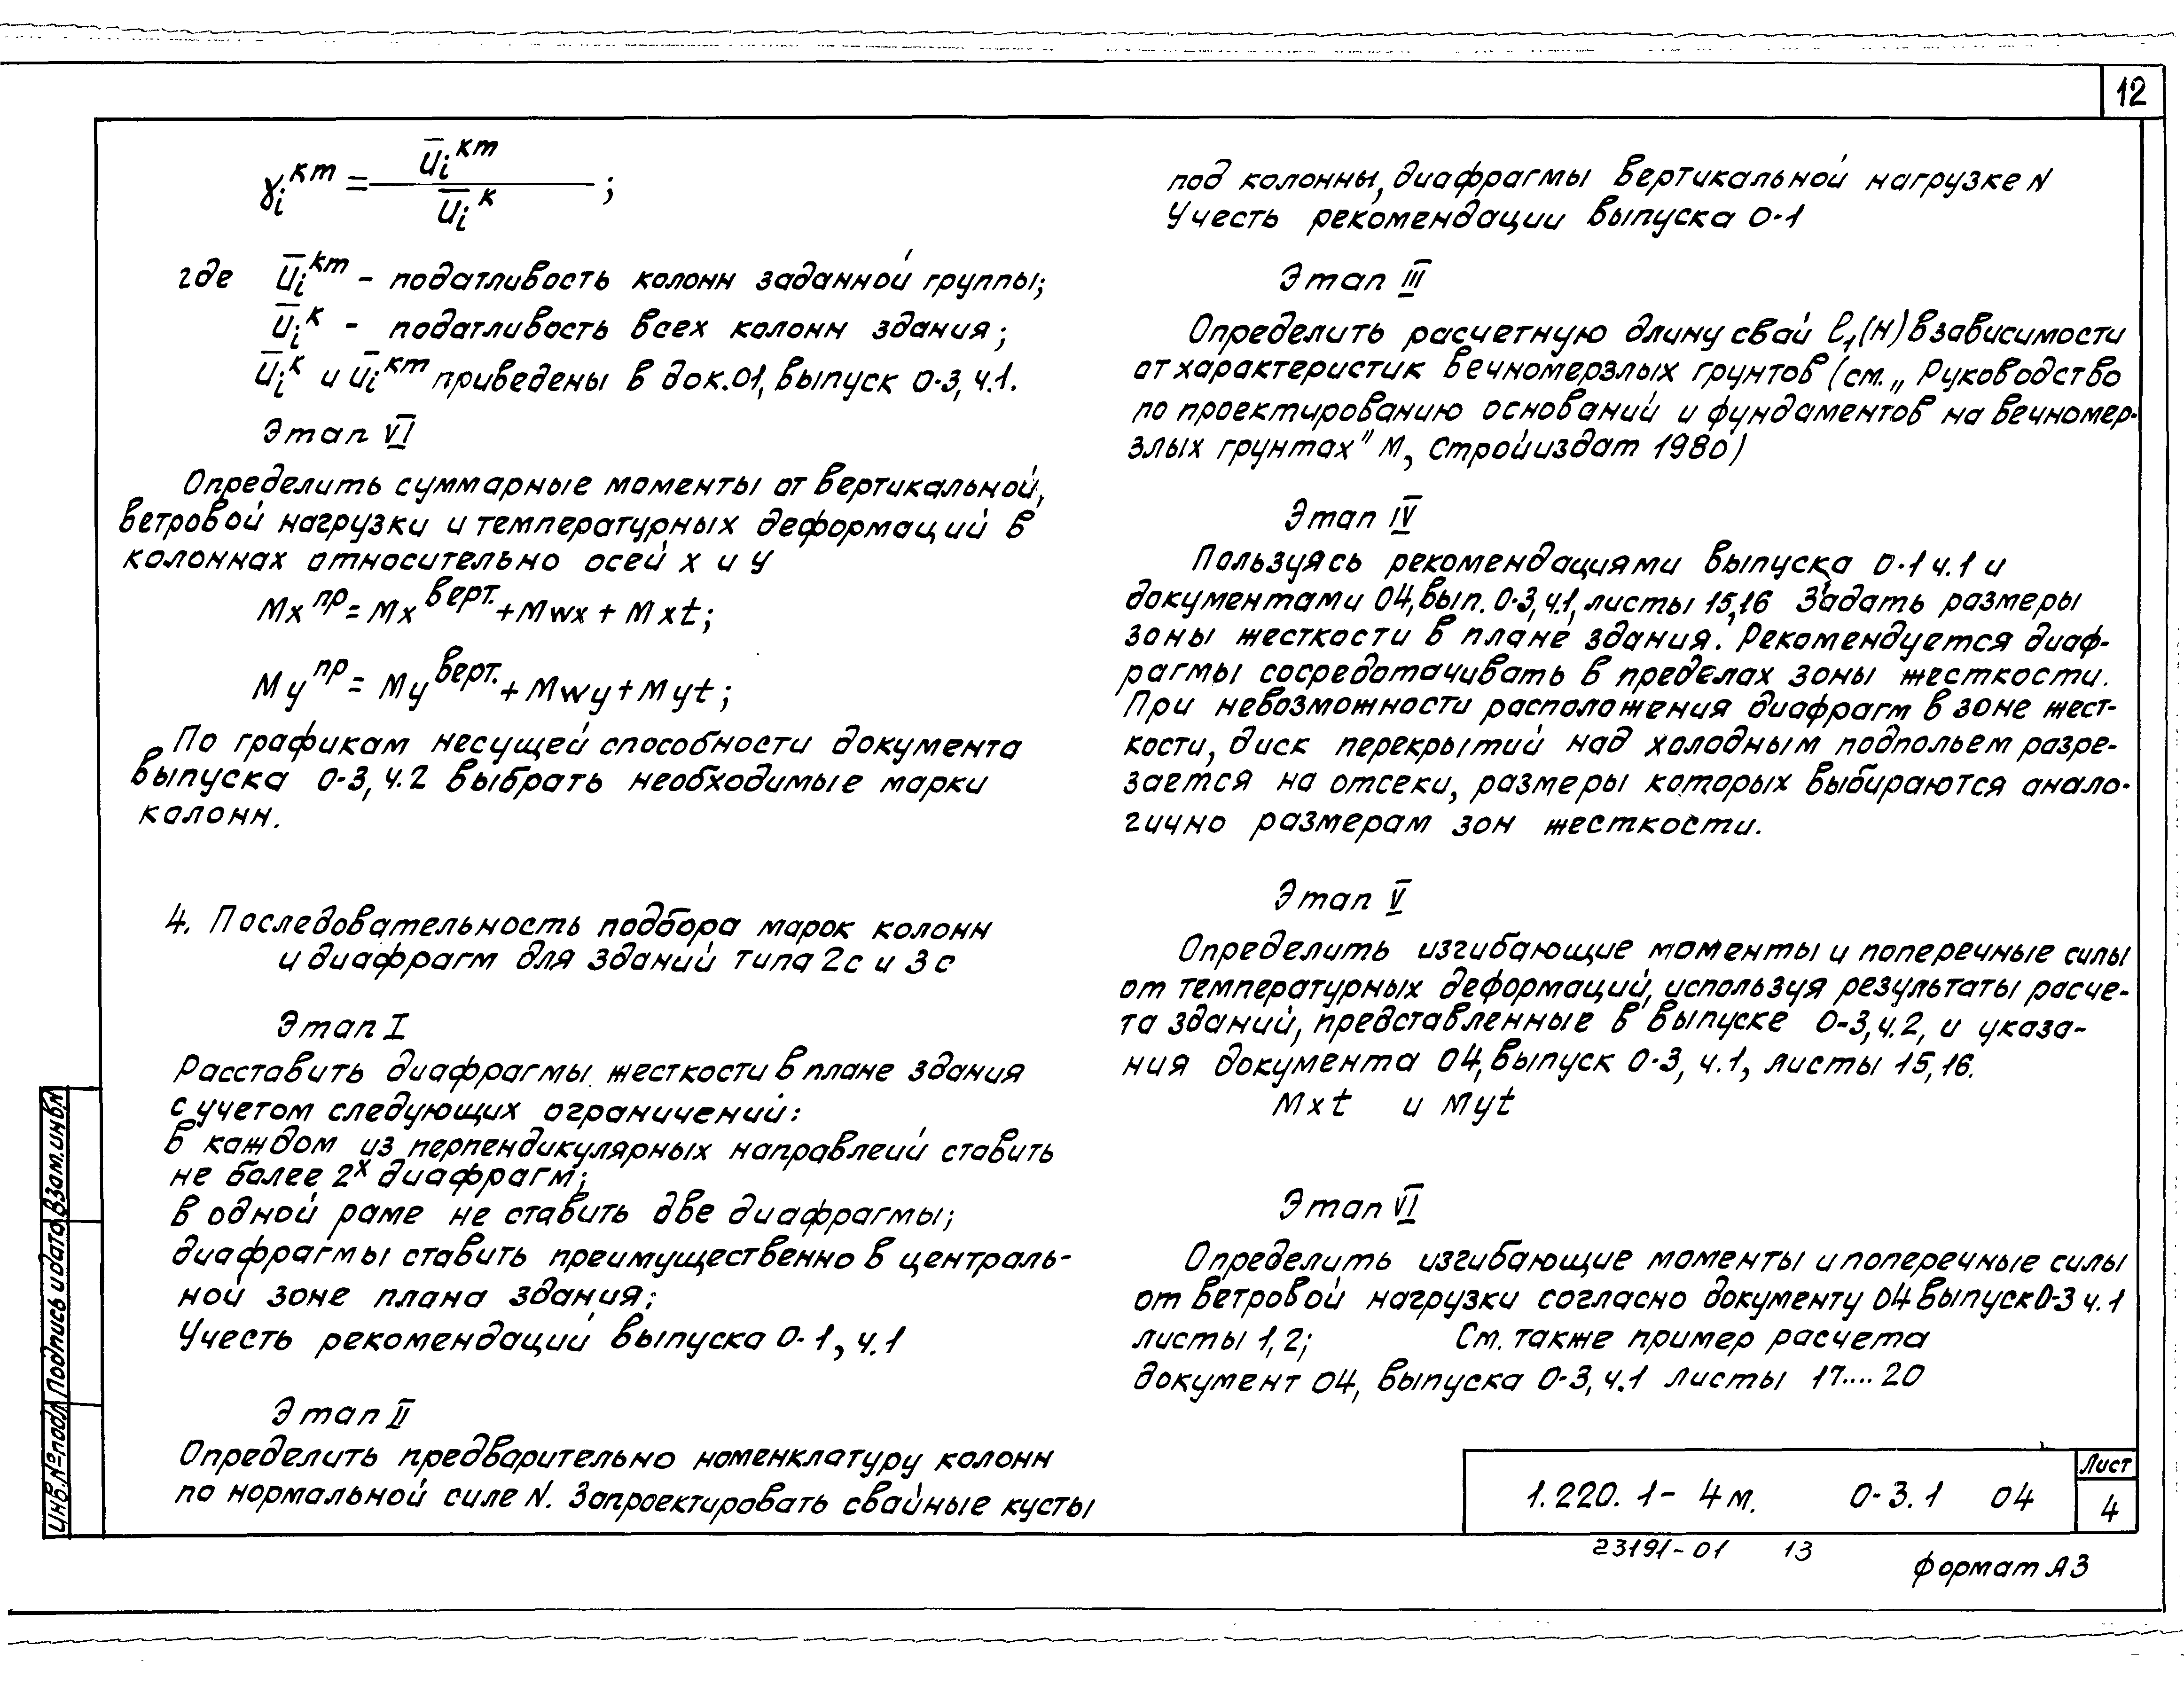 12
γᵢᵏᵐ = ūᵢᵏᵐ / ūᵢᵏ ;
где ūᵢᵏᵐ – податливость колонн заданной группы;
ūᵢᵏ – податливость всех колонн здания;
ūᵢᵏ и ūᵢᵏᵐ приведены в док.01, выпуск 0-3, ч.1.
Этап VI
Определить суммарные моменты от вертикальной,
ветровой нагрузки и температурных деформаций в
колоннах относительно осей x и y
Mx пр = Mx верт. + Mwx + Mxt;
My пр = My верт. + Mwy + Myt;
По графикам несущей способности документа
выпуска 0-3, ч.2 выбрать необходимые марки
колонн.
4. Последовательность подбора марок колонн
и диафрагм для зданий типа 2с и 3с
Этап I
Расставить диафрагмы жесткости в плане здания
с учетом следующих ограничений:
в каждом из перпендикулярных направлеий ставить
не более 2х диафрагм;
в одной раме не ставить две диафрагмы;
диафрагмы ставить преимущественно в централь-
ной зоне плана здания;
Учесть рекомендаций выпуска 0-1, ч.1
Этап II
Определить предварительно номенклатуру колонн
по нормальной силе N. Запроектировать свайные кусты
под колонны, диафрагмы вертикальной нагрузке N
Учесть рекомендации выпуска 0-1
Этап III
Определить расчетную длину свай l₁(H) в зависимости
от характеристик вечномерзлых грунтов (см. „Руководство
по проектированию оснований и фундаментов на вечномер-
злых грунтах" М, Стройиздат 1980)
Этап IV
Пользуясь рекомендациями выпуска 0-1 ч.1 и
документами 04, вып. 0-3, ч.1, листы 15,16 Задать размеры
зоны жесткости в плане здания. Рекомендуется диаф-
рагмы сосредотачивать в пределах зоны жесткости.
При невозможности расположения диафрагм в зоне жест-
кости, диск перекрытий над холодным подпольем разре-
зается на отсеки, размеры которых выбираются анало-
гично размерам зон жесткости.
Этап V
Определить изгибающие моменты и поперечные силы
от температурных деформаций, используя результаты расче-
та зданий, представленные в выпуске 0-3, ч.2, и указа-
ния документа 04, выпуск 0-3, ч.1, листы 15,16.
Mxt и Myt
Этап VI
Определить изгибающие моменты и поперечные силы
от ветровой нагрузки согласно документу 04 выпуск 0-3 ч.1
листы 1,2; См. также пример расчета
документ 04, выпуска 0-3, ч.1 листы 17....20
Инв.№подл Подпись и дата Взам.инв№
1.220.1-4м. 0-3.1 04
Лист
4
23191-01 13
формат А3